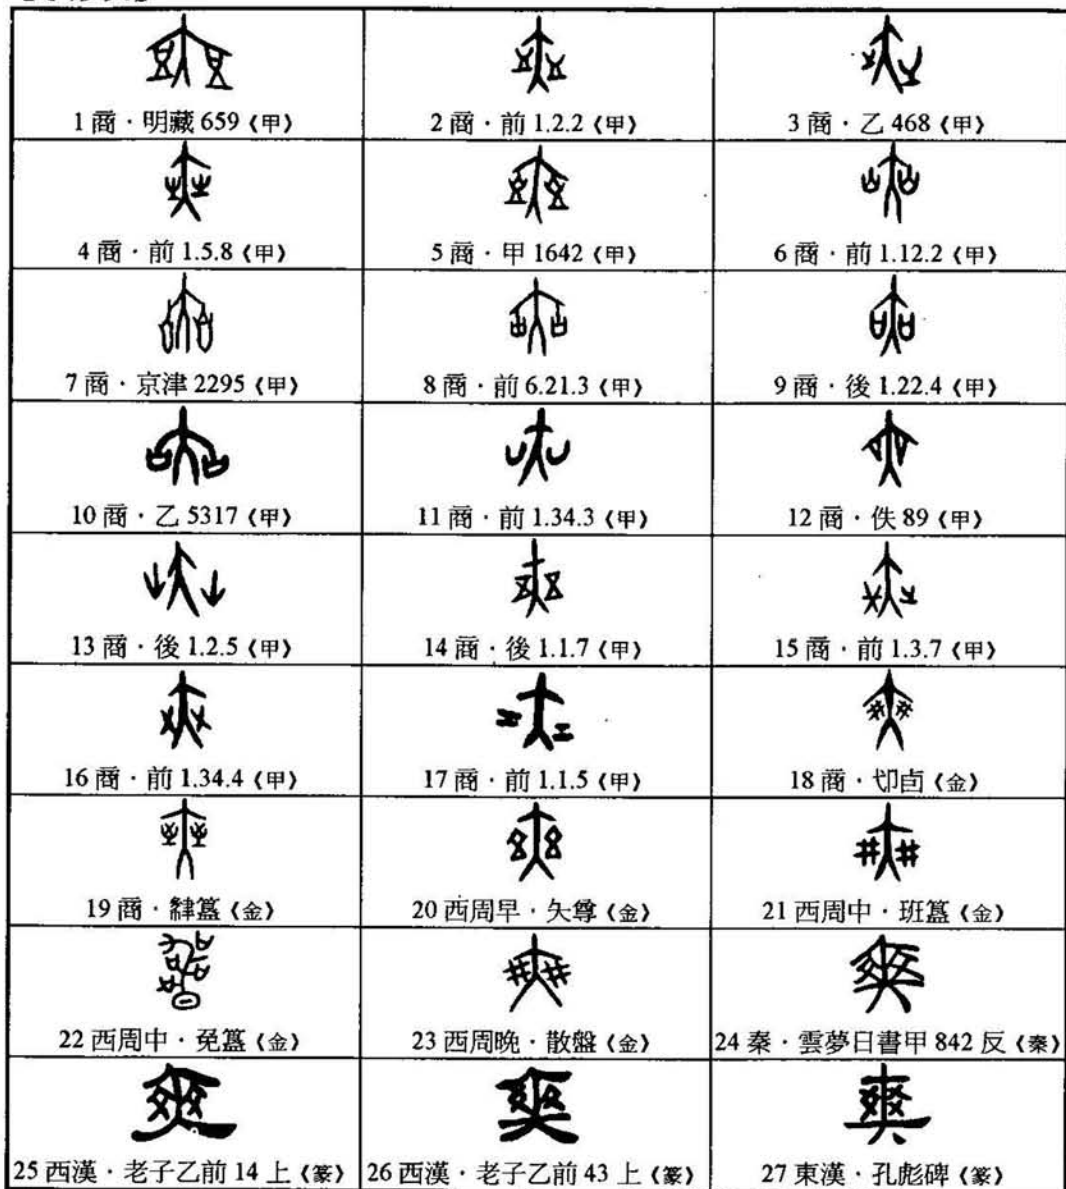 1 商．明藏 659《甲》
2 商．前 1.2.2《甲》
3 商．乙 468《甲》
4 商．前 1.5.8《甲》
5 商．甲 1642《甲》
6 商．前 1.12.2《甲》
7 商．京津 2295《甲》
8 商．前 6.21.3《甲》
9 商．後 1.22.4《甲》
10 商．乙 5317《甲》
11 商．前 1.34.3《甲》
12 商．佚 89《甲》
13 商．後 1.2.5《甲》
14 商．後 1.1.7《甲》
15 商．前 1.3.7《甲》
16 商．前 1.34.4《甲》
17 商．前 1.1.5《甲》
18 商．卣《金》
19 商．簋《金》
20 西周早．矢尊《金》
21 西周中．班簋《金》
22 西周中．免簋《金》
23 西周晚．散盤《金》
24 秦．雲夢日書甲 842 反《秦》
25 西漢．老子乙前 14 上《篆》
26 西漢．老子乙前 43 上《篆》
27 東漢．孔彪碑《篆》